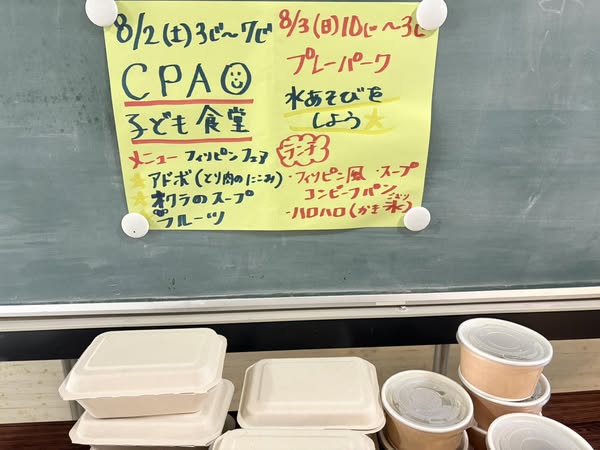 8/2(土)3じ〜7じ
CPAO
子ども食堂
メニュー フィリピンフェア
アドボ(とり肉のにこみ)
オクラのスープ
フルーツ
8/3(日)10じ〜3じ
プレーパーク
水あそびを
しよう
ランチ
・フィリピン風 ・スープ
コンビーフパン
・ハロハロ(かき氷)